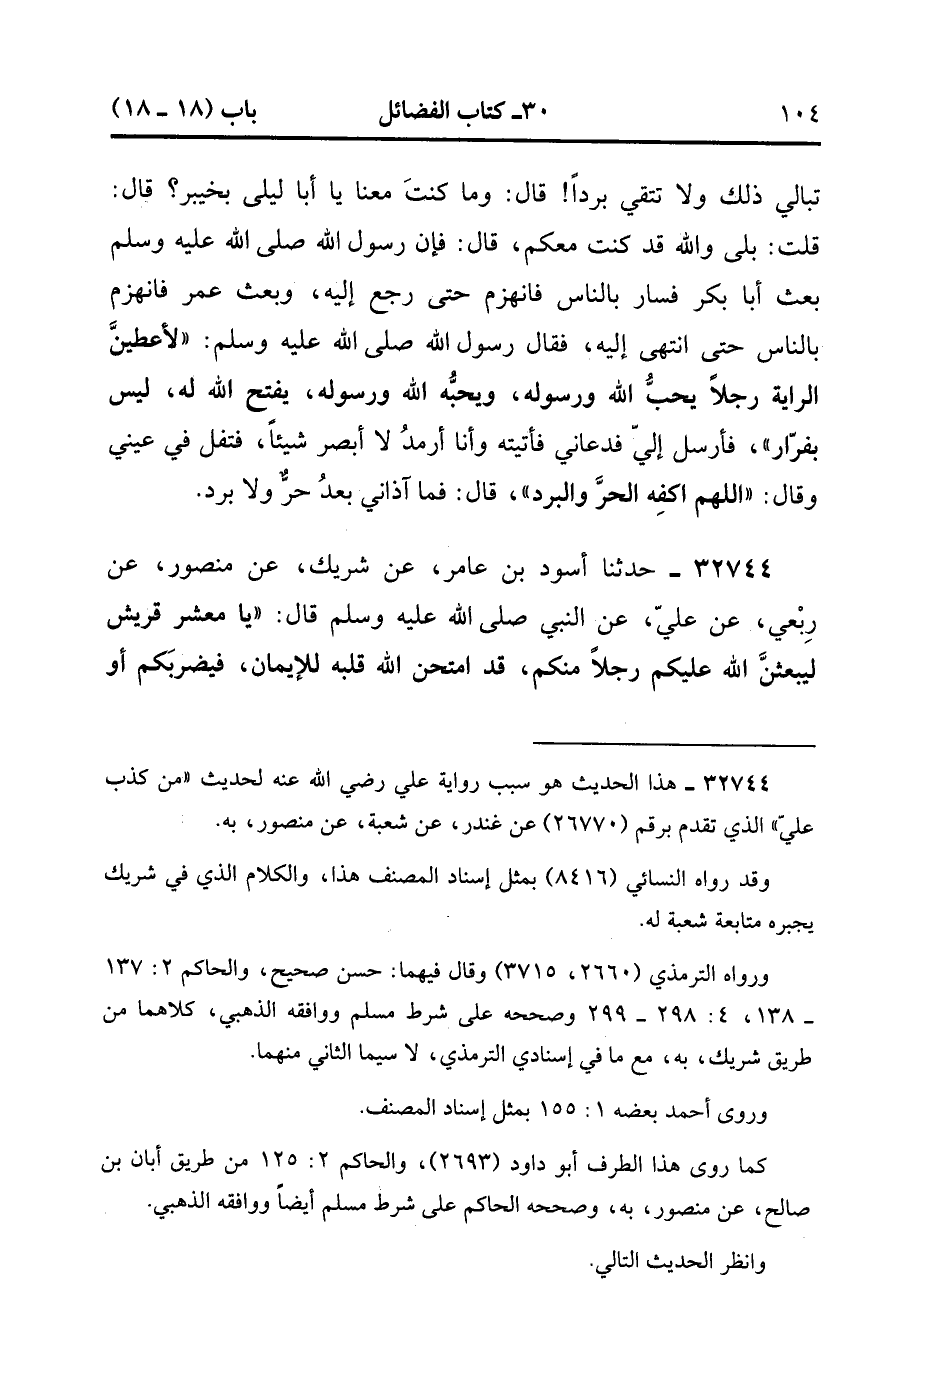 ١٠٤ ٣٠ـ كتاب الفضائل باب (١٨ ـ ١٨)
تبالي ذلك ولا تتقي برداً! قال: وما كنتَ معنا يا أبا ليلى بخيبر؟ قال:
قلت: بلى والله قد كنت معكم، قال: فإن رسول الله صلى الله عليه وسلم
بعث أبا بكر فسار بالناس فانهزم حتى رجع إليه، وبعث عمر فانهزم
بالناس حتى انتهى إليه، فقال رسول الله صلى الله عليه وسلم: «لأعطينَّ
الراية رجلاً يحبُّ الله ورسوله، ويحبُّه الله ورسوله، يفتح الله له، ليس
بفرّار»، فأرسل إليّ فدعاني فأتيته وأنا أرمدُ لا أبصر شيئاً، فتفل في عيني
وقال: «اللهم اكفِه الحرَّ والبرد»، قال: فما آذاني بعدُ حرٌّ ولا برد.
٣٢٧٤٤ ـ حدثنا أسود بن عامر، عن شريك، عن منصور، عن
رِبْعي، عن عليّ، عن النبي صلى الله عليه وسلم قال: «يا معشر قريش
ليبعثنَّ الله عليكم رجلاً منكم، قد امتحن الله قلبه للإيمان، فيضربَكم أو
٣٢٧٤٤ ـ هذا الحديث هو سبب رواية علي رضي الله عنه لحديث «من كذب
عليّ» الذي تقدم برقم (٢٦٧٧٠) عن غندر، عن شعبة، عن منصور، به.
وقد رواه النسائي (٨٤١٦) بمثل إسناد المصنف هذا، والكلام الذي في شريك
يجبره متابعة شعبة له.
ورواه الترمذي (٢٦٦٠، ٣٧١٥) وقال فيهما: حسن صحيح، والحاكم ٢: ١٣٧
ـ ١٣٨، ٤: ٢٩٨ ـ ٢٩٩ وصححه على شرط مسلم ووافقه الذهبي، كلاهما من
طريق شريك، به، مع ما في إسنادي الترمذي، لا سيما الثاني منهما.
وروى أحمد بعضه ١: ١٥٥ بمثل إسناد المصنف.
كما روى هذا الطرف أبو داود (٢٦٩٣)، والحاكم ٢: ١٢٥ من طريق أبان بن
صالح، عن منصور، به، وصححه الحاكم على شرط مسلم أيضاً ووافقه الذهبي.
وانظر الحديث التالي.